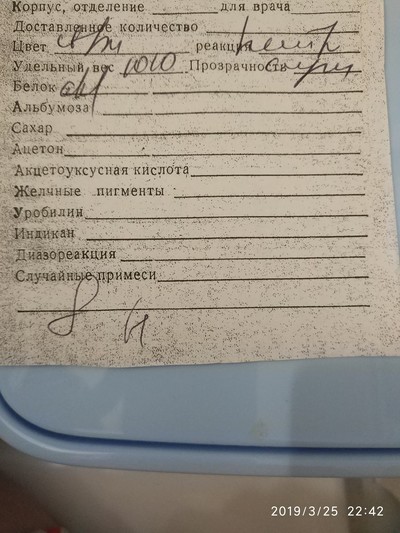 Корпус, отделение для врача
Доставленное количество
Цвет реакция нейтр
Удельный вес 1010 Прозрачность
Белок
Альбумоза
Сахар
Ацетон
Акцетоуксусная кислота
Желчные пигменты
Уробилин
Индикан
Диазореакция
Случайные примеси
2019/3/25 22:42